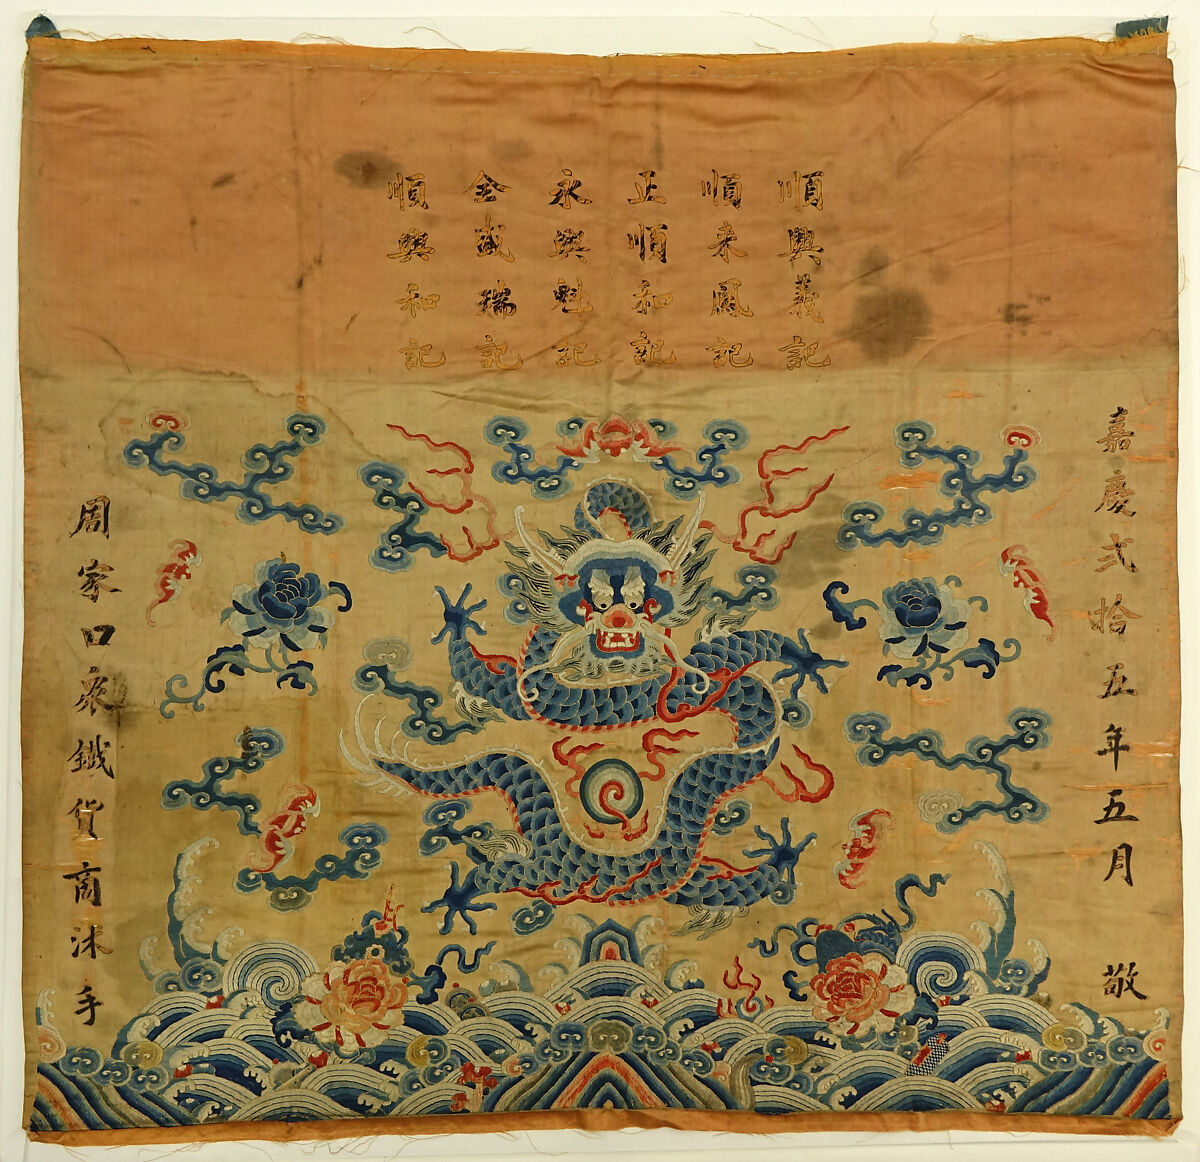 嘉慶弍拾五年五月 敬
順興義記
順來鳳記
正順和記
永興魁記
全盛瑞記
順興和記
周家口衆鐵貨商沐手